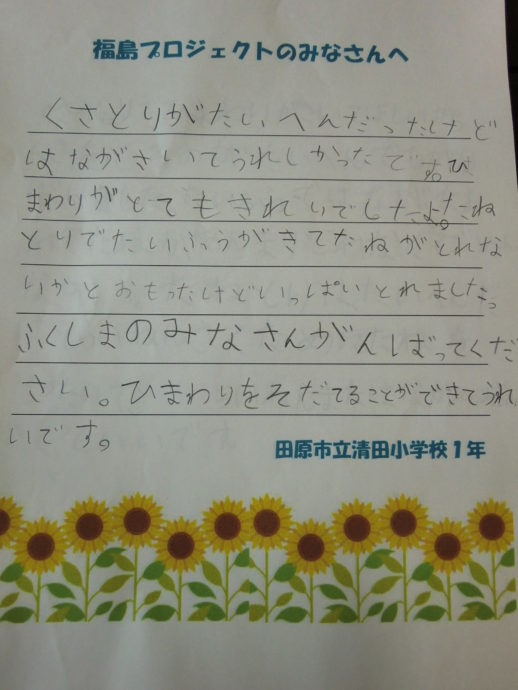 福島プロジェクトのみなさんへ
くさとりがたいへんだったけど
はながさいてうれしかったです。ひ
まわりがとてもきれいでしたよ。たね
とりでたいふうがきてたねがとれな
いかとおもったけどいっぱいとれました。
ふくしまのみなさんがんばってくだ
さい。ひまわりをそだてることができてうれ
いです。
田原市立清田小学校1年